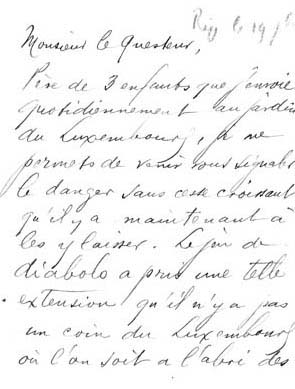 le 19
Monsieur le Questeur,
Père de 3 enfants que j'envoie
quotidiennement au jardin
du Luxembourg, je me
permets de venir vous signaler
le danger sans cesse croissant
qu'il y a maintenant à
les y laisser. Le jeu de
diabolo a pris une telle
extension qu'il n'y a pas
un coin du Luxembourg
où l'on soit à l'abri des